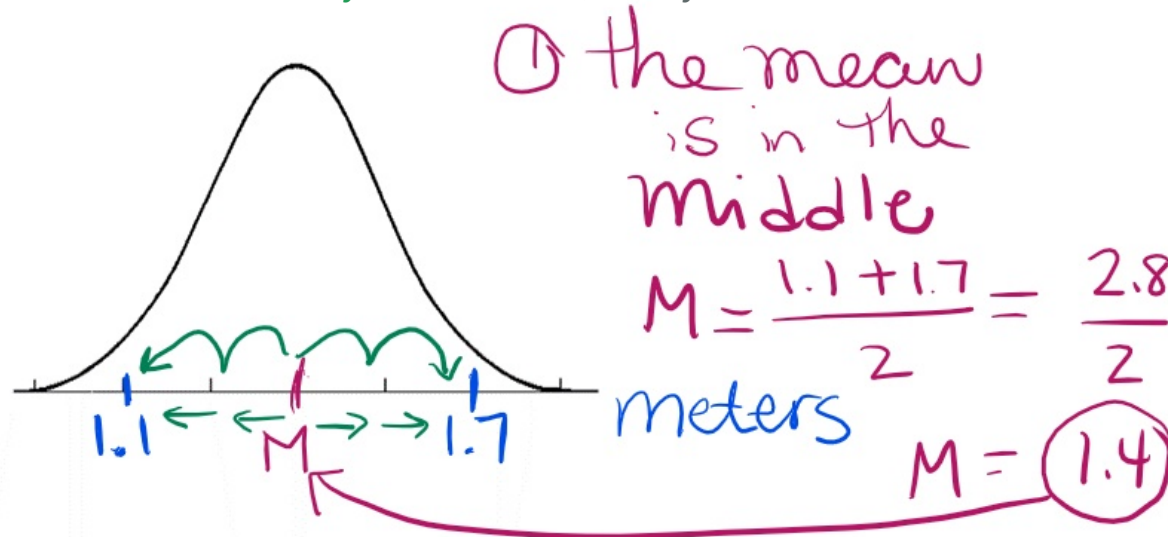 ① the mean
is in the
middle
M = 1.1 + 1.7 / 2 = 2.8 / 2
1.1 M 1.7 meters
M = 1.4